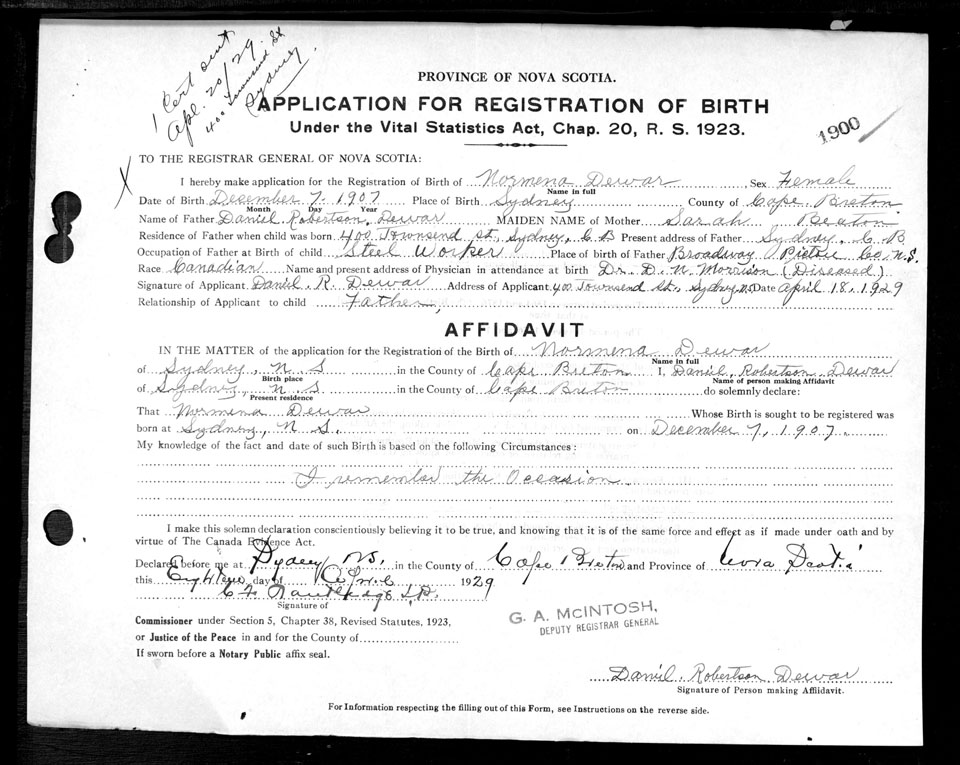 1 Cert sent
Apl. 20/29
400 Townsend St
Sydney.
PROVINCE OF NOVA SCOTIA.
APPLICATION FOR REGISTRATION OF BIRTH
Under the Vital Statistics Act, Chap. 20, R. S. 1923.
1900
X TO THE REGISTRAR GENERAL OF NOVA SCOTIA:
I hereby make application for the Registration of Birth of Normena Dewar Sex Female
Name in full
Date of Birth December 7, 1907 Place of Birth Sydney County of Cape Breton
Month Day Year
Name of Father Daniel Robertson Dewar MAIDEN NAME of Mother Sarah Beaton
Residence of Father when child was born 400 Townsend St, Sydney, C B Present address of Father Sydney, C. B
Occupation of Father at Birth of child Steel Worker Place of birth of Father Broadway Pictou Co. N.S.
Race Canadian Name and present address of Physician in attendance at birth Dr. D. N. Morrison (Diseased)
Signature of Applicant Daniel R. Dewar Address of Applicant 400 Townsend St., Sydney NS Date April 18, 1929
Relationship of Applicant to child Father,
AFFIDAVIT
IN THE MATTER of the application for the Registration of the Birth of Normena Dewar
Name in full
of Sydney, N S in the County of Cape Breton I, Daniel Robertson Dewar
Birth place Name of person making Affidavit
of Sydney, N S in the County of Cape Breton do solemnly declare:
Present residence
That Normena Dewar Whose Birth is sought to be registered was
born at Sydney, N S. on December 7, 1907.
My knowledge of the fact and date of such Birth is based on the following Circumstances:
I remember the Occasion
I make this solemn declaration conscientiously believing it to be true, and knowing that it is of the same force and effect as if made under oath and by
virtue of The Canada Evidence Act.
Declared before me at Sydney NS. in the County of Cape Breton and Province of Nova Scotia
this day of 1929
Signature of
Commissioner under Section 5, Chapter 38, Revised Statutes, 1923,
or Justice of the Peace in and for the County of
If sworn before a Notary Public affix seal.
G. A. McINTOSH,
DEPUTY REGISTRAR GENERAL
Daniel Robertson Dewar
Signature of Person making Affidavit.
For Information respecting the filling out of this Form, see Instructions on the reverse side.